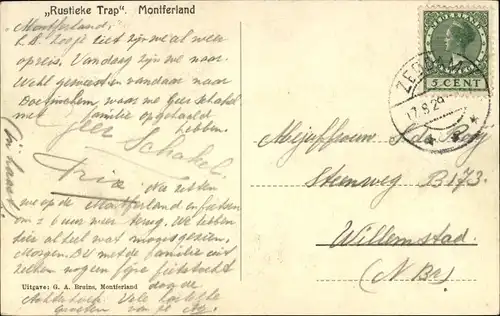 „Rustieke Trap". Montferland
Montferland.
L.A. Zooje ziet zijn we al weer
op reis. Vandaag zijn we naar
Wehl geweest en vandaar naar
Doetinchem, waar we Geer Schakel
met familie opgehaald
hebben.
Geer Schakel
Tria
(in haast)
Nu zitten
we op de Montferland en fietsen
om ± 6 uur weer terug. We hebben
hier al heel wat moois gezien.
Morgen D.V. met de familie uit
Zelhem nog een fijne fietstocht
door de
Achterhoek. Vele hartelijke
groeten van je
Uitgave: G. A. Bruins, Montferland
NEDERLAND
5 CENT
17.8.29
Mejuffrouw J. de Rooy
Steenweg B173.
Willemstad.
(N Br)